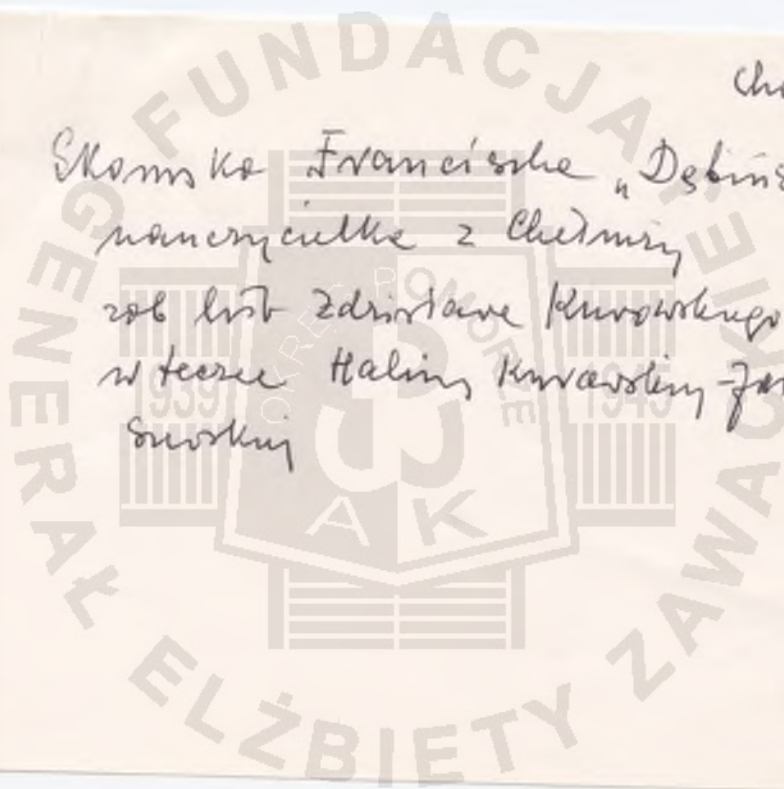 Skomska Franciszka „Dębińs
nauczycielka z Chełmży
zob list Zdzisława Kurowskiego
w teczce Haliny Kurowskiej-Ja
FUNDACJA
GENERAŁ ELŻBIETY ZAWACKIEJ
OKRĘG POMORZE
1939 1945
AK